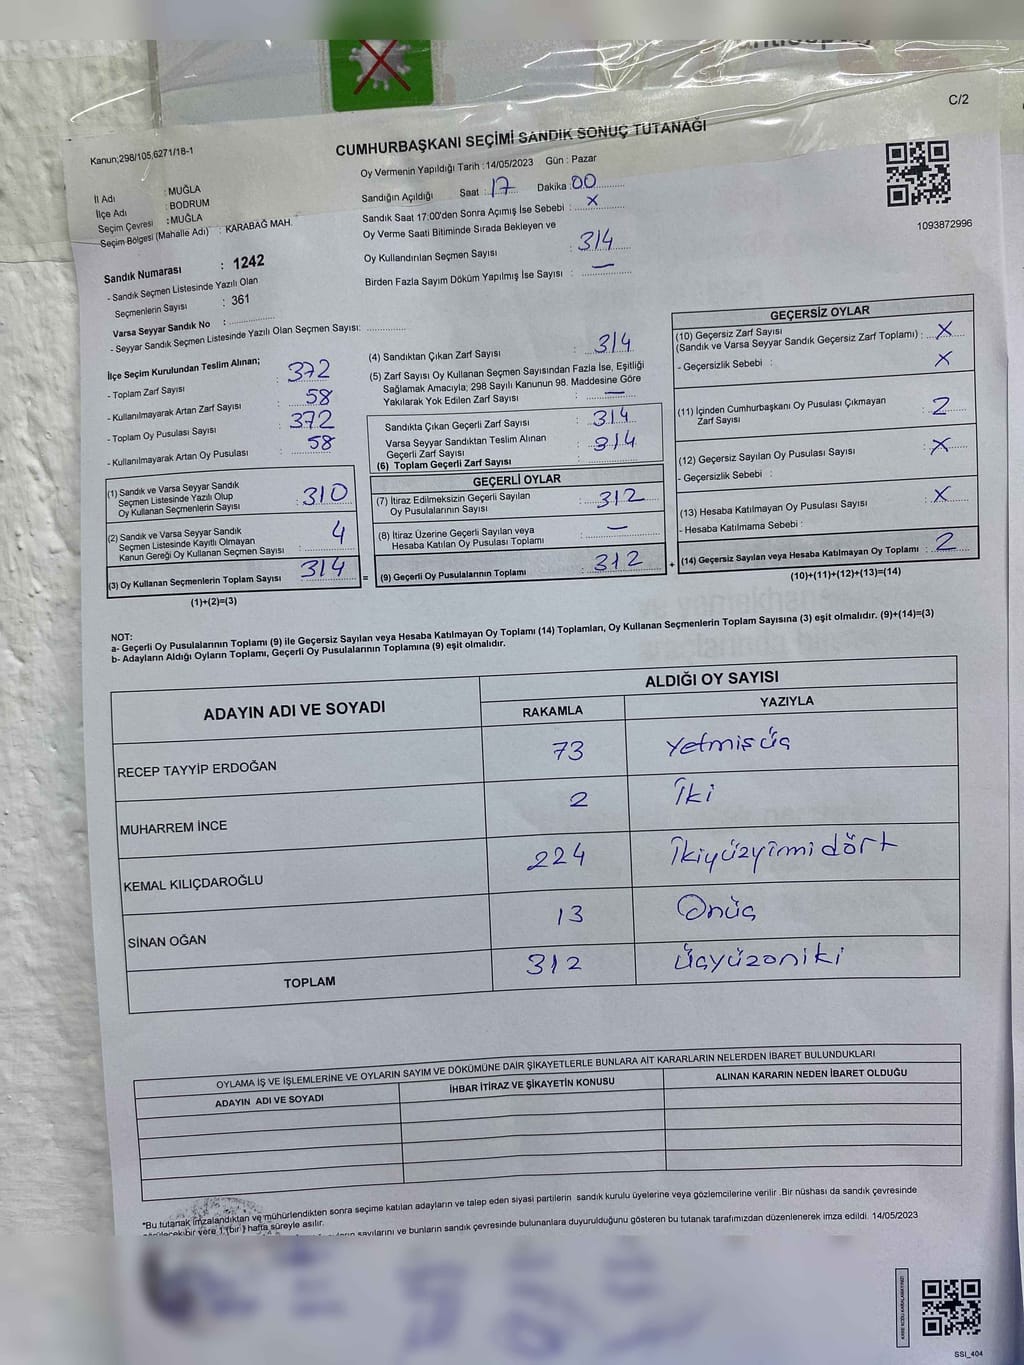 C/2
Kanun;298/105,6271/18-1
CUMHURBAŞKANI SEÇİMİ SANDIK SONUÇ TUTANAĞI
Oy Vermenin Yapıldığı Tarih :14/05/2023 Gün : Pazar
İl Adı : MUĞLA
İlçe Adı : BODRUM
Seçim Çevresi : MUĞLA
Seçim Bölgesi (Mahalle Adı) : KARABAĞ MAH.
Sandığın Açıldığı Saat : 17 Dakika : 00
Sandık Saat 17:00'den Sonra Açımış İse Sebebi : X
Oy Verme Saati Bitiminde Sırada Bekleyen ve
Oy Kullandırılan Seçmen Sayısı : 314
Birden Fazla Sayım Döküm Yapılmış İse Sayısı : —
1093872996
Sandık Numarası : 1242
- Sandık Seçmen Listesinde Yazılı Olan
Seçmenlerin Sayısı : 361
Varsa Seyyar Sandık No :
- Seyyar Sandık Seçmen Listesinde Yazılı Olan Seçmen Sayısı:
İlçe Seçim Kurulundan Teslim Alınan;
- Toplam Zarf Sayısı : 372
- Kullanılmayarak Artan Zarf Sayısı : 58
- Toplam Oy Pusulası Sayısı : 372
- Kullanılmayarak Artan Oy Pusulası : 58
(1) Sandık ve Varsa Seyyar Sandık
Seçmen Listesinde Yazılı Olup
Oy Kullanan Seçmenlerin Sayısı : 310
(2) Sandık ve Varsa Seyyar Sandık
Seçmen Listesinde Kayıtlı Olmayan
Kanun Gereği Oy Kullanan Seçmen Sayısı : 4
(3) Oy Kullanan Seçmenlerin Toplam Sayısı : 314
(1)+(2)=(3)
(4) Sandıktan Çıkan Zarf Sayısı : 314
(5) Zarf Sayısı Oy Kullanan Seçmen Sayısından Fazla İse, Eşitliği
Sağlamak Amacıyla; 298 Sayılı Kanunun 98. Maddesine Göre
Yakılarak Yok Edilen Zarf Sayısı : —
Sandıkta Çıkan Geçerli Zarf Sayısı : 314
Varsa Seyyar Sandıktan Teslim Alınan
Geçerli Zarf Sayısı : 314
(6) Toplam Geçerli Zarf Sayısı :
GEÇERLİ OYLAR
(7) İtiraz Edilmeksizin Geçerli Sayılan
Oy Pusulalarının Sayısı : 312
(8) İtiraz Üzerine Geçerli Sayılan veya
Hesaba Katılan Oy Pusulası Toplamı : —
= (9) Geçerli Oy Pusulalarının Toplamı : 312
GEÇERSİZ OYLAR
(10) Geçersiz Zarf Sayısı
(Sandık ve Varsa Seyyar Sandık Geçersiz Zarf Toplamı) : X
- Geçersizlik Sebebi : X
(11) İçinden Cumhurbaşkanı Oy Pusulası Çıkmayan
Zarf Sayısı : 2
(12) Geçersiz Sayılan Oy Pusulası Sayısı : X
- Geçersizlik Sebebi :
(13) Hesaba Katılmayan Oy Pusulası Sayısı : X
- Hesaba Katılmama Sebebi :
+ (14) Geçersiz Sayılan veya Hesaba Katılmayan Oy Toplamı : 2
(10)+(11)+(12)+(13)=(14)
NOT:
a- Geçerli Oy Pusulalarının Toplamı (9) ile Geçersiz Sayılan veya Hesaba Katılmayan Oy Toplamı (14) Toplamları, Oy Kullanan Seçmenlerin Toplam Sayısına (3) eşit olmalıdır. (9)+(14)=(3)
b- Adayların Aldığı Oyların Toplamı, Geçerli Oy Pusulalarının Toplamına (9) eşit olmalıdır.
ADAYIN ADI VE SOYADI ALDIĞI OY SAYISI
RAKAMLA YAZIYLA
RECEP TAYYİP ERDOĞAN 73 Yetmişüç
MUHARREM İNCE 2 İki
KEMAL KILIÇDAROĞLU 224 İkiyüzyirmi dört
SİNAN OĞAN 13 Onüç
TOPLAM 312 Üçyüzoniki
OYLAMA İŞ VE İŞLEMLERİNE VE OYLARIN SAYIM VE DÖKÜMÜNE DAİR ŞİKAYETLERLE BUNLARA AİT KARARLARIN NELERDEN İBARET BULUNDUKLARI
ADAYIN ADI VE SOYADI İHBAR İTİRAZ VE ŞİKAYETİN KONUSU ALINAN KARARIN NEDEN İBARET OLDUĞU
*Bu tutanak imzalandıktan ve mühürlendikten sonra seçime katılan adayların ve talep eden siyasi partilerin sandık kurulu üyelerine veya gözlemcilerine verilir .Bir nüshası da sandık çevresinde
bir yere 1 (bir ) hafta süreyle asılır.
sayılarını ve bunların sandık çevresinde bulunanlara duyurulduğunu gösteren bu tutanak tarafımızdan düzenlenerek imza edildi. 14/05/2023
SSI_404